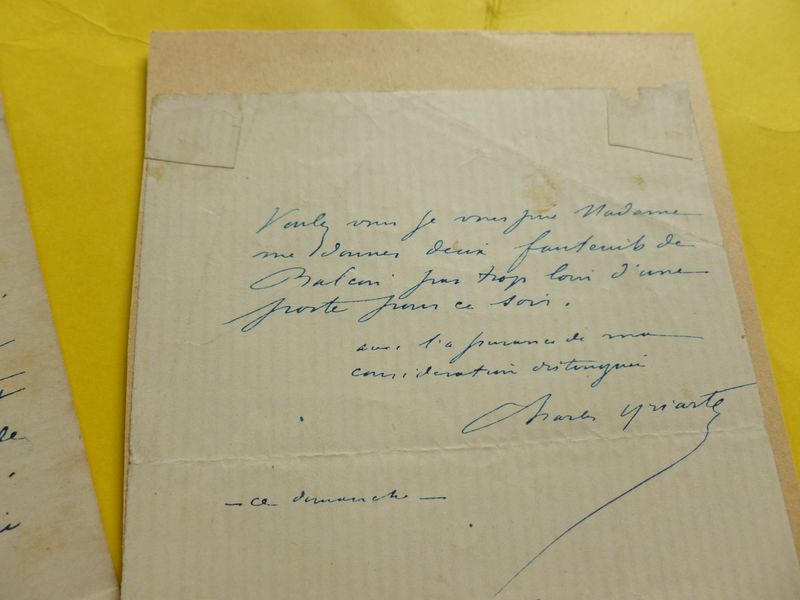 Voulez vous je vous prie Madame
me donner deux fauteuils de
Balcon pas trop loin d'une
porte pour ce soir.
avec l'assurance de ma
consideration distinguée
Charles Yriarte
— ce dimanche —